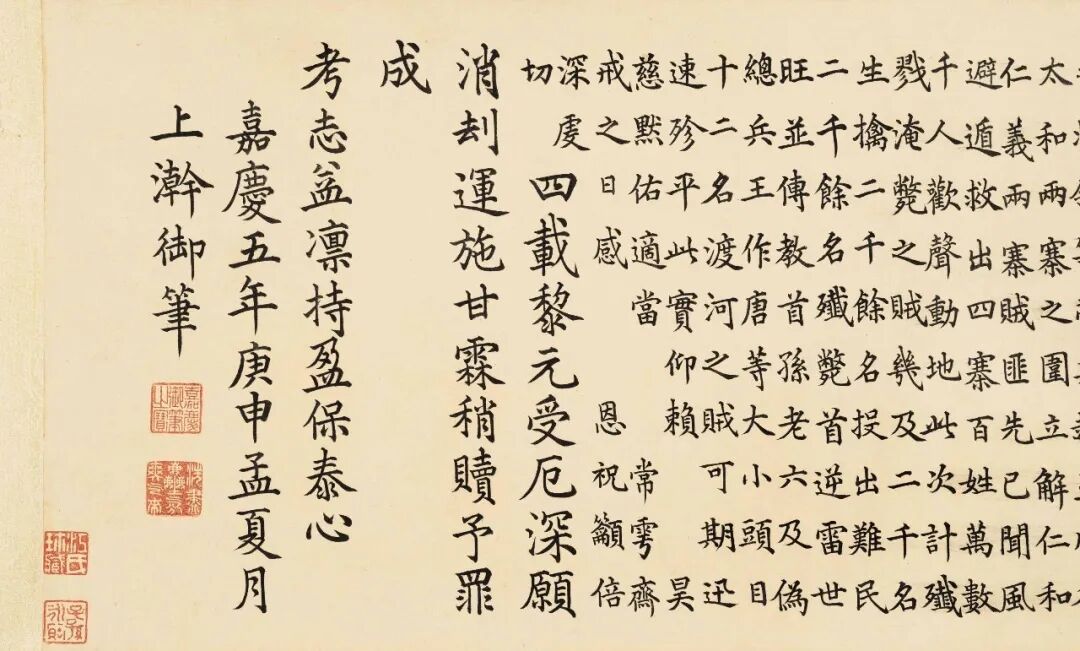 太和兩寨之圍立解仁和
仁義兩寨賊匪先已聞風
避遁救出四寨百姓萬數
千人歡聲動地此次計殲
戮淹斃之賊幾及二千名
生擒二千餘名投出難民
二千餘名殲斃首逆雷世
旺並傳教首孫老六及偽
總兵王作唐等大小頭目
十二名渡河之賊可期迅
速殄平此實仰賴 昊
慈默佑適當 常雩齋
戒之日感 恩祝籲倍
深虔
切
四載黎元受厄深願
消刦運施甘霖稍贖予罪
成
考志益凜持盈保泰心
嘉慶五年庚申孟夏月
上澣御筆
嘉慶御筆之寶